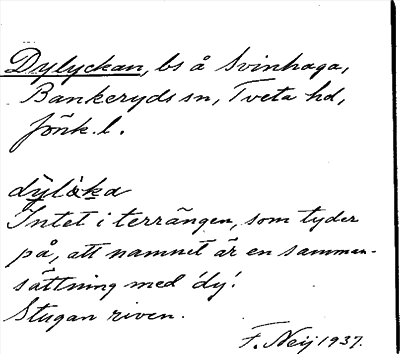 Dylyckan, bs å Svinhaga,
Bankeryds sn, Tveta hd,
Jönk. l.
dỳlỳka
Intet i terrängen, som tyder
på, att namnet är en samman-
sättning med 'dy'.
Stugan riven.
F. Neij 1937.